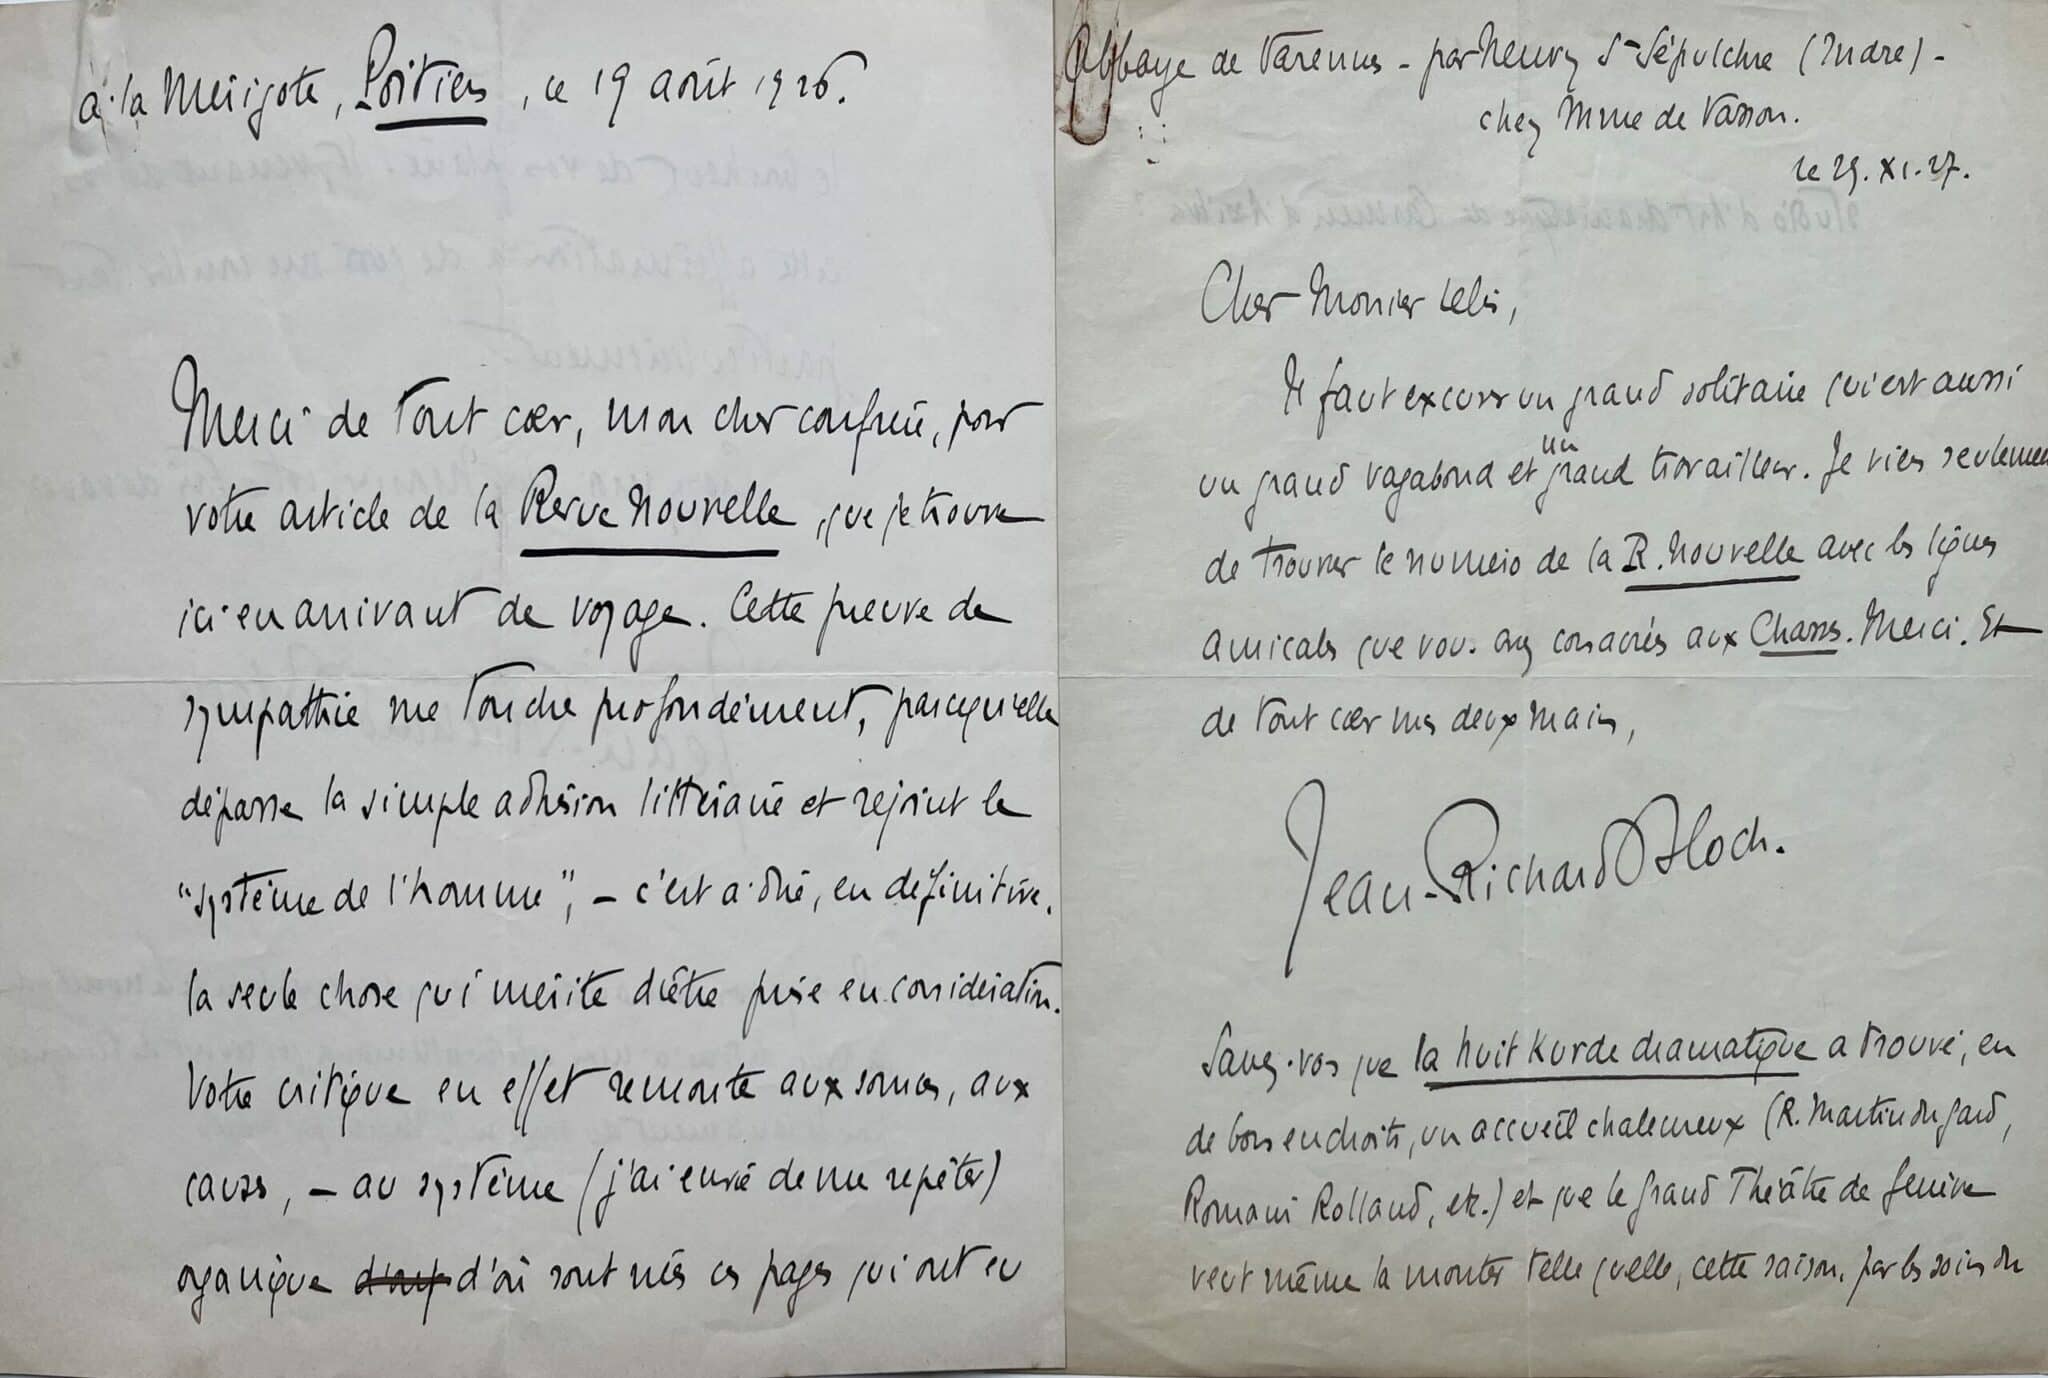 à la Mérigote, Poitiers, ce 19 août 1926.
Merci de tout cœr, mon cher confrère, pour
votre article de la Revue Nouvelle, que je trouve
ici en arrivant de voyage. Cette preuve de
sympathie me touche profondément, parcequ'elle
dépasse la simple adhésion littéraire et rejoint le
"système de l'homme", – c'est à dire, en définitive,
la seule chose qui mérite d'être prise en considération.
Votre critique en effet remonte aux sources, aux
causes, – au système (j'ai envie de me répéter)
organique d'où sont nées ces pages qui ont eu
Abbaye de Varennes - par Neuvy St Sépulchre (Indre) -
chez Mme de Vasson.
le 29. XI. 27.
Cher Monsieur
Il faut excuser un grand solitaire qui est aussi
un grand vagabond et un grand travailleur. Je viens seulement
de trouver le numéro de la R. Nouvelle avec les lignes
amicales que vous avez consacrées aux Chasses. Merci. Et
de tout cœr mes deux mains,
Jean-Richard Bloch.
Savez-vous que la Nuit Kurde dramatique a trouvé, en
de bons endroits, un accueil chaleureux (R. Martin du Gard,
Romain Rolland, etc.) et que le Grand Théâtre de Genève
veut même la monter telle quelle, cette saison, par les soins du
studio d'Art dramatique de Carmen d'Assilva ?